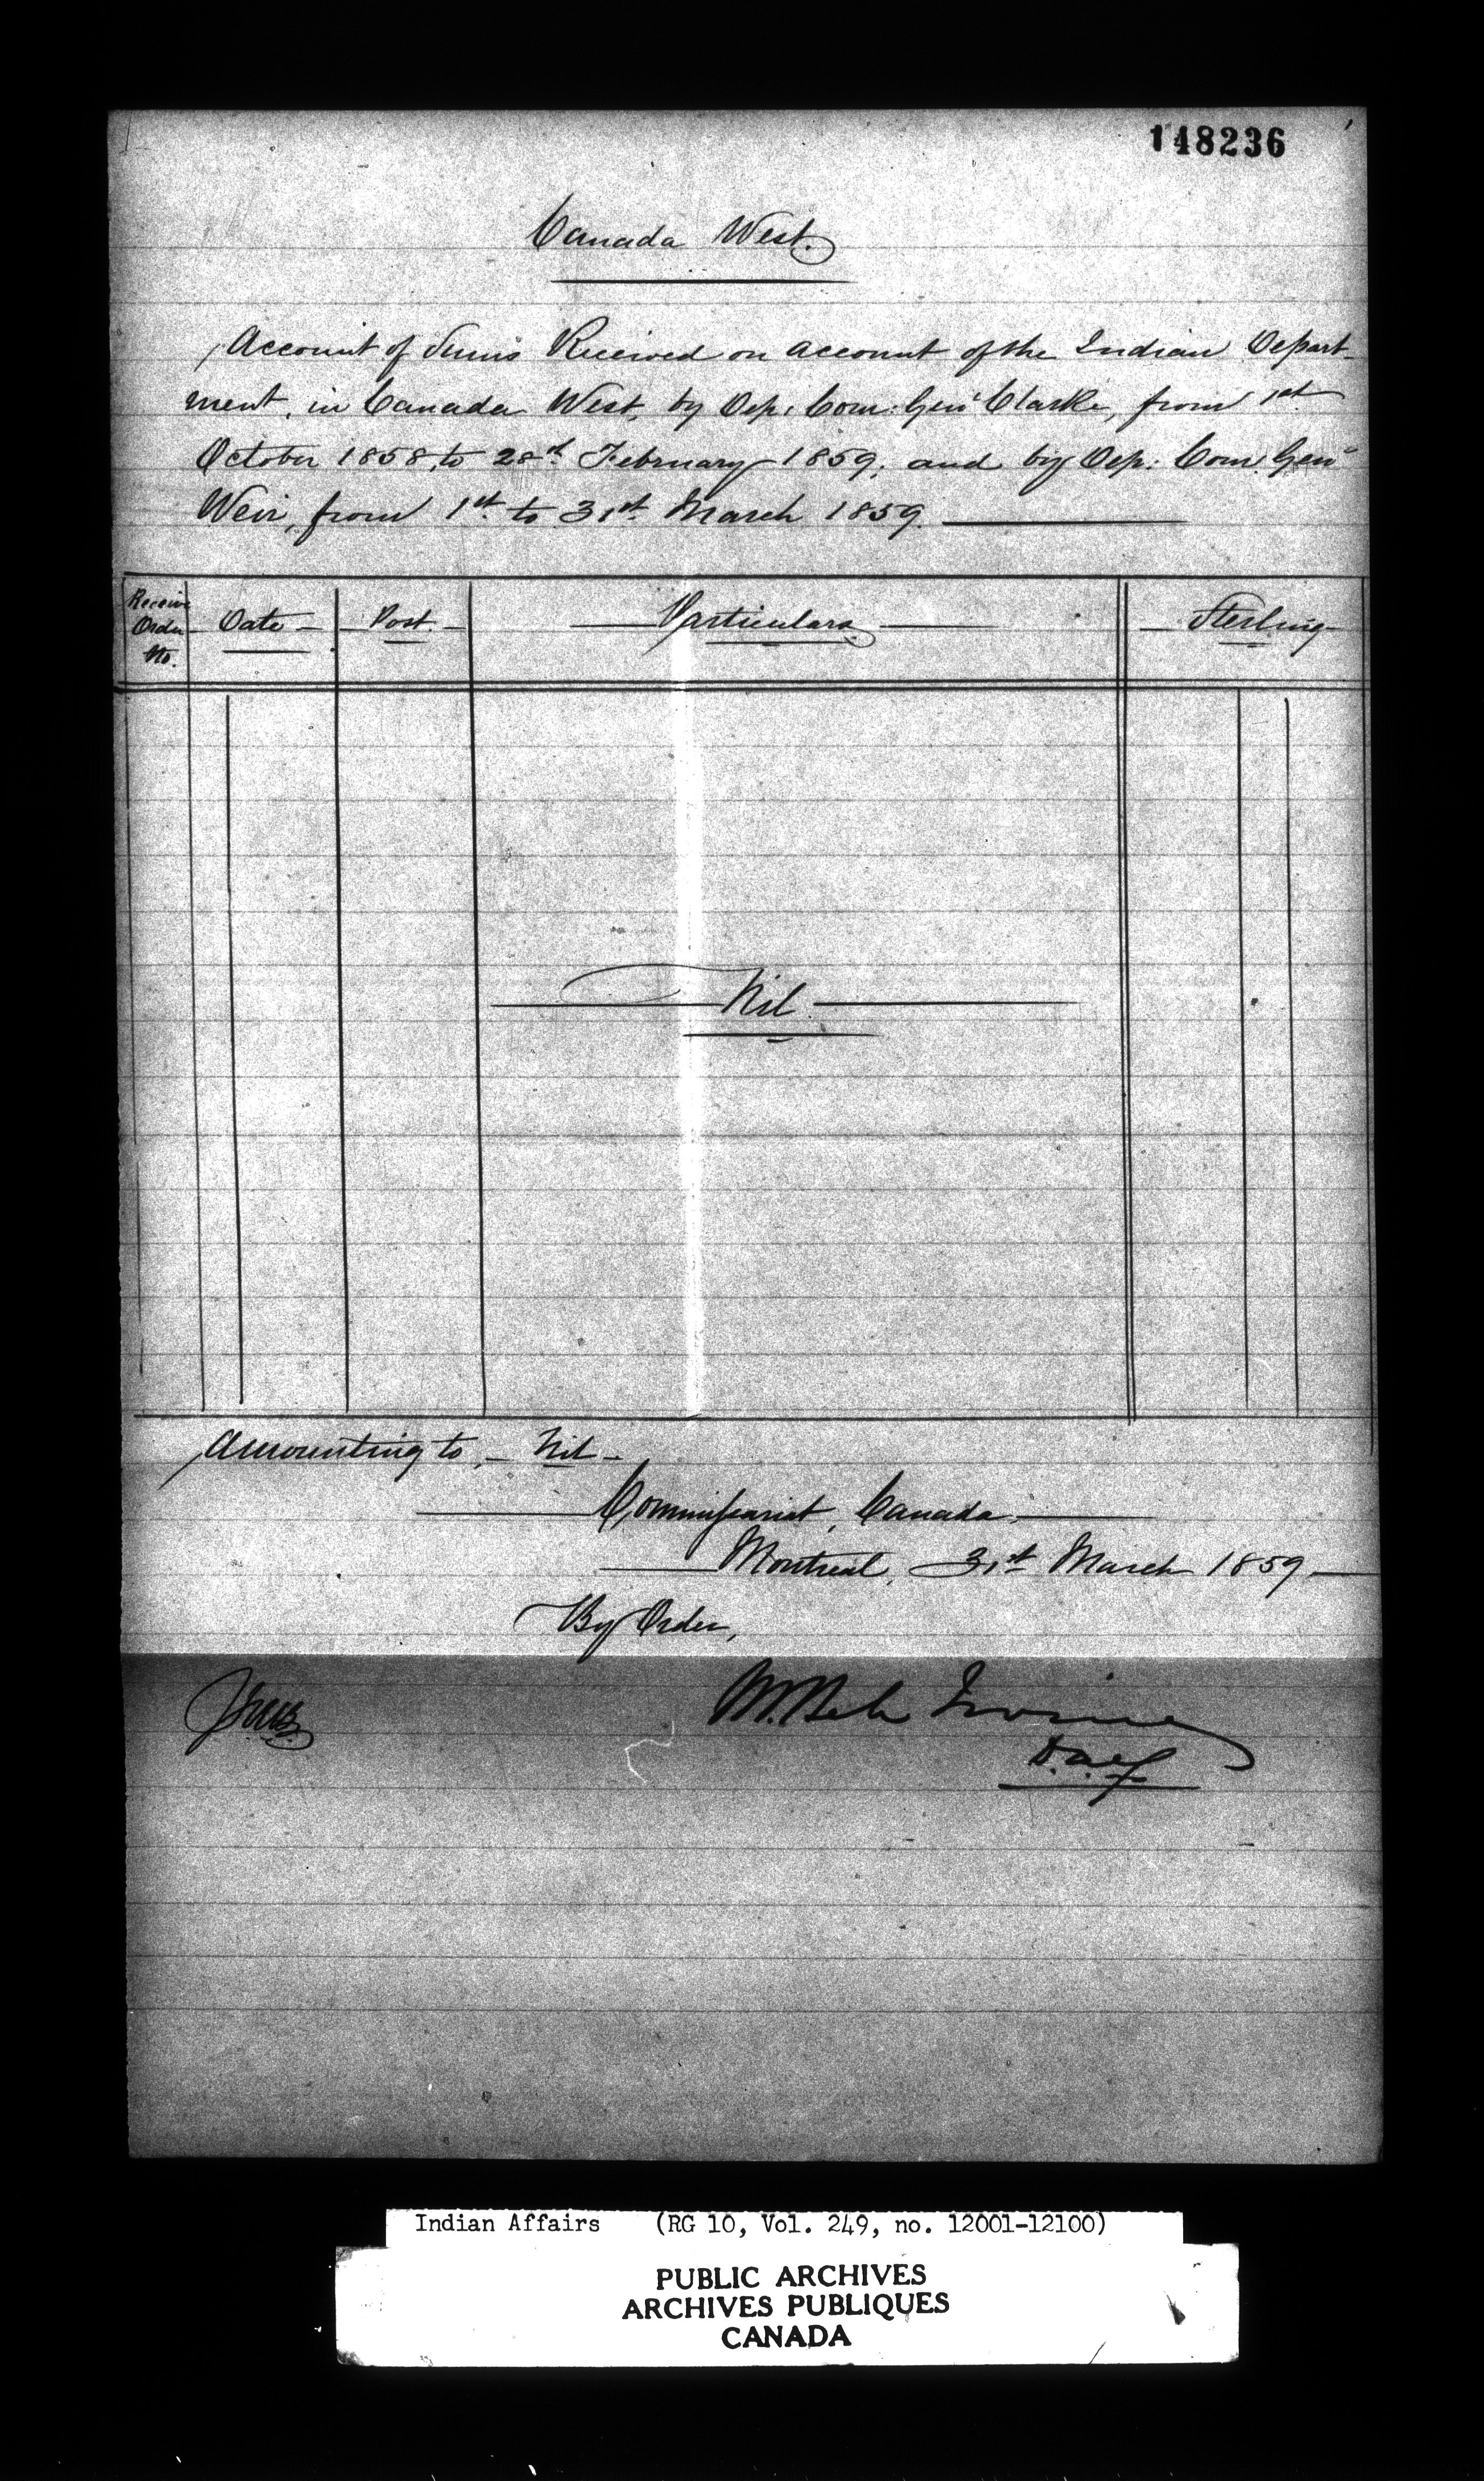 148236
Canada West.
Account of Sums Received on account of the Indian Depart-
ment, in Canada West, by Dep: Com: Gen^l Clarke, from 1st
October 1858, to 28th February 1859, and by Dep: Com: Gen^l
Weir, from 1st to 31st March 1859.
Receive Order No. Date Post. Particulars Sterling
Nil
Amounting to, - Nil -
Commissariat, Canada
Montreal, 31st March 1859
By Order,
Irvine
Indian Affairs (RG 10, Vol. 249, no. 12001-12100)
PUBLIC ARCHIVES
ARCHIVES PUBLIQUES
CANADA